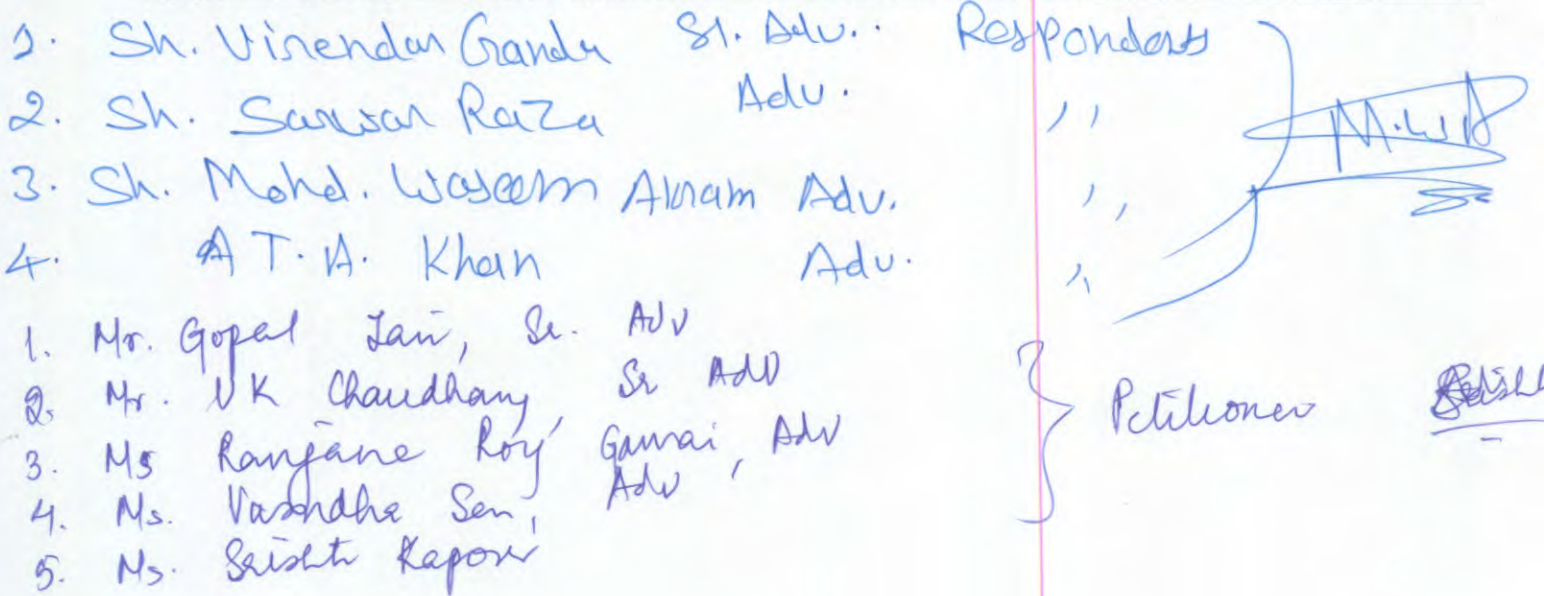 1. Sh. Virendar Ganda Sr. Adv. Respondents
2. Sh. Sarwar Raza Adv. ,,
3. Sh. Mohd. Waseem Akram Adv. ,,
4. A T. A. Khan Adv. ,,
1. Mr. Gopal Jain, Sr. Adv
2. Mr. UK Chaudhary, Sr Adv
3. Ms Ranjana Roy Gawai, Adv
4. Ms. Vasundhra Sen, Adv
5. Ms. Srishti Kapoor
Petitioner